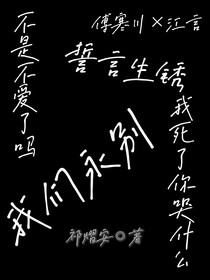 傅寒川×江言
誓言生锈
不是不爱了吗
我们永别
我死了你哭什么
祁熠安◎著